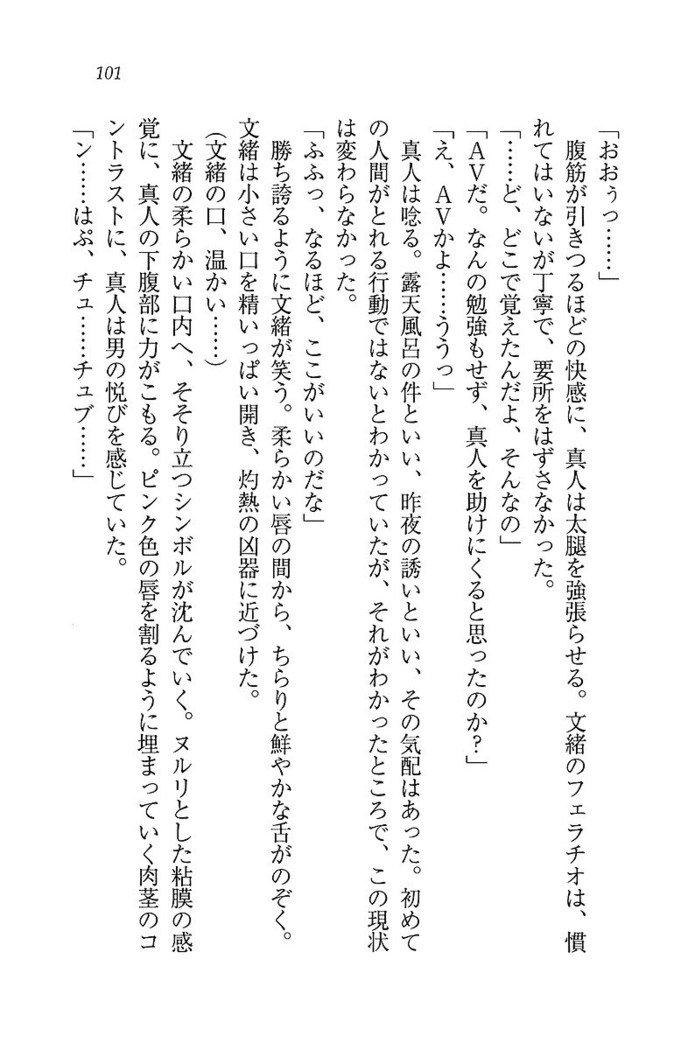 101
「おおぅっ……」
　腹筋が引きつるほどの快感に、真人は太腿を強張らせる。文緒のフェラチオは、慣
れてはいないが丁寧で、要所をはずさなかった。
「……ど、どこで覚えたんだよ、そんなの」
「ＡＶだ。なんの勉強もせず、真人を助けにくると思ったのか？」
「え、ＡＶかよ……ううっ」
　真人は唸る。露天風呂の件といい、昨夜の誘いといい、その気配はあった。初めて
の人間がとれる行動ではないとわかっていたが、それがわかったところで、この現状
は変わらなかった。
「ふふっ、なるほど、ここがいいのだな」
　勝ち誇るように文緒が笑う。柔らかい唇の間から、ちらりと鮮やかな舌がのぞく。
文緒は小さい口を精いっぱい開き、灼熱の凶器に近づけた。
（文緒の口、温かい……）
　文緒の柔らかい口内へ、そそり立つシンボルが沈んでいく。ヌルリとした粘膜の感
覚に、真人の下腹部に力がこもる。ピンク色の唇を割るように埋まっていく肉茎のコ
ントラストに、真人は男の悦びを感じていた。
「ン……はぷ、チュ……チュブ……」